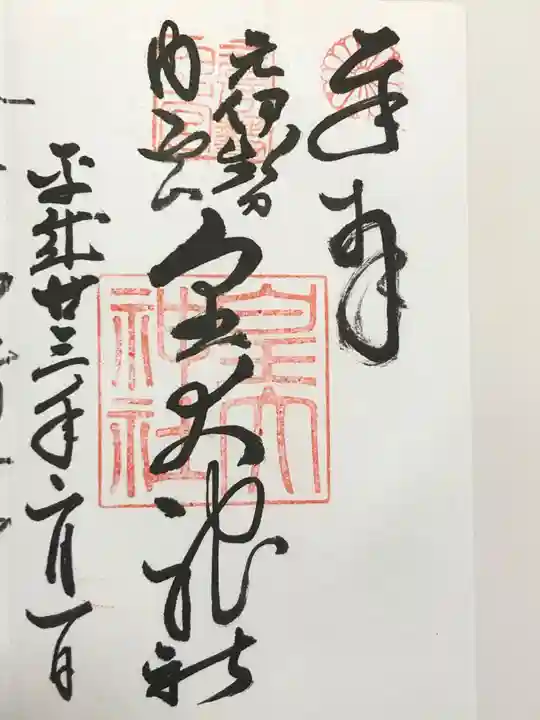 奉拝
元伊勢
内宮
皇大神社
皇大神社
平成廿三年六月一日